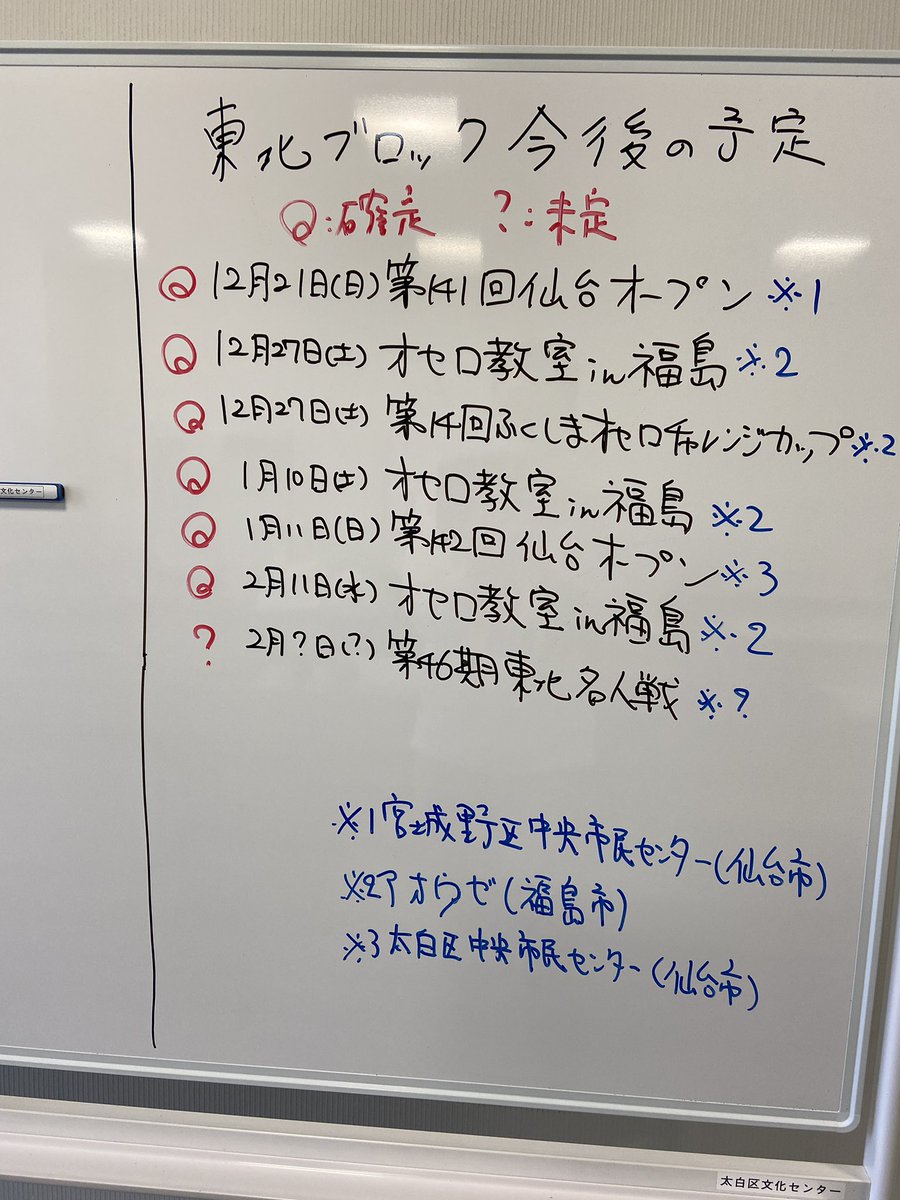 東北ブロック今後の予定
◎:確定 ?:未定
◎ 12月21日(日) 第141回仙台オープン ※1
◎ 12月27日(土) オセロ教室in福島 ※2
◎ 12月27日(土) 第14回ふくしまオセロチャレンジカップ ※2
◎ 1月10日(土) オセロ教室in福島 ※2
◎ 1月11日(日) 第142回仙台オープン ※3
◎ 2月11日(水) オセロ教室in福島 ※2
? 2月?日(?) 第46期東北名人戦 ※?
※1 宮城野区中央市民センター(仙台市)
※2 アオウゼ(福島市)
※3 太白区中央市民センター(仙台市)
文化センター
太白区文化センター